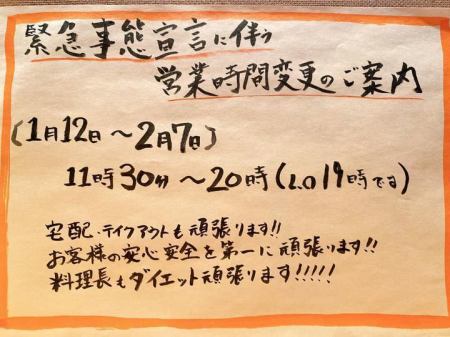 緊急事態宣言に伴う
営業時間変更のご案内
(1月12日〜2月7日)
11時30分〜20時(L.O19時です)
宅配・テイクアウトも頑張ります!!
お客様の安心安全を第一に頑張ります!!
料理長もダイエット頑張ります!!!!!